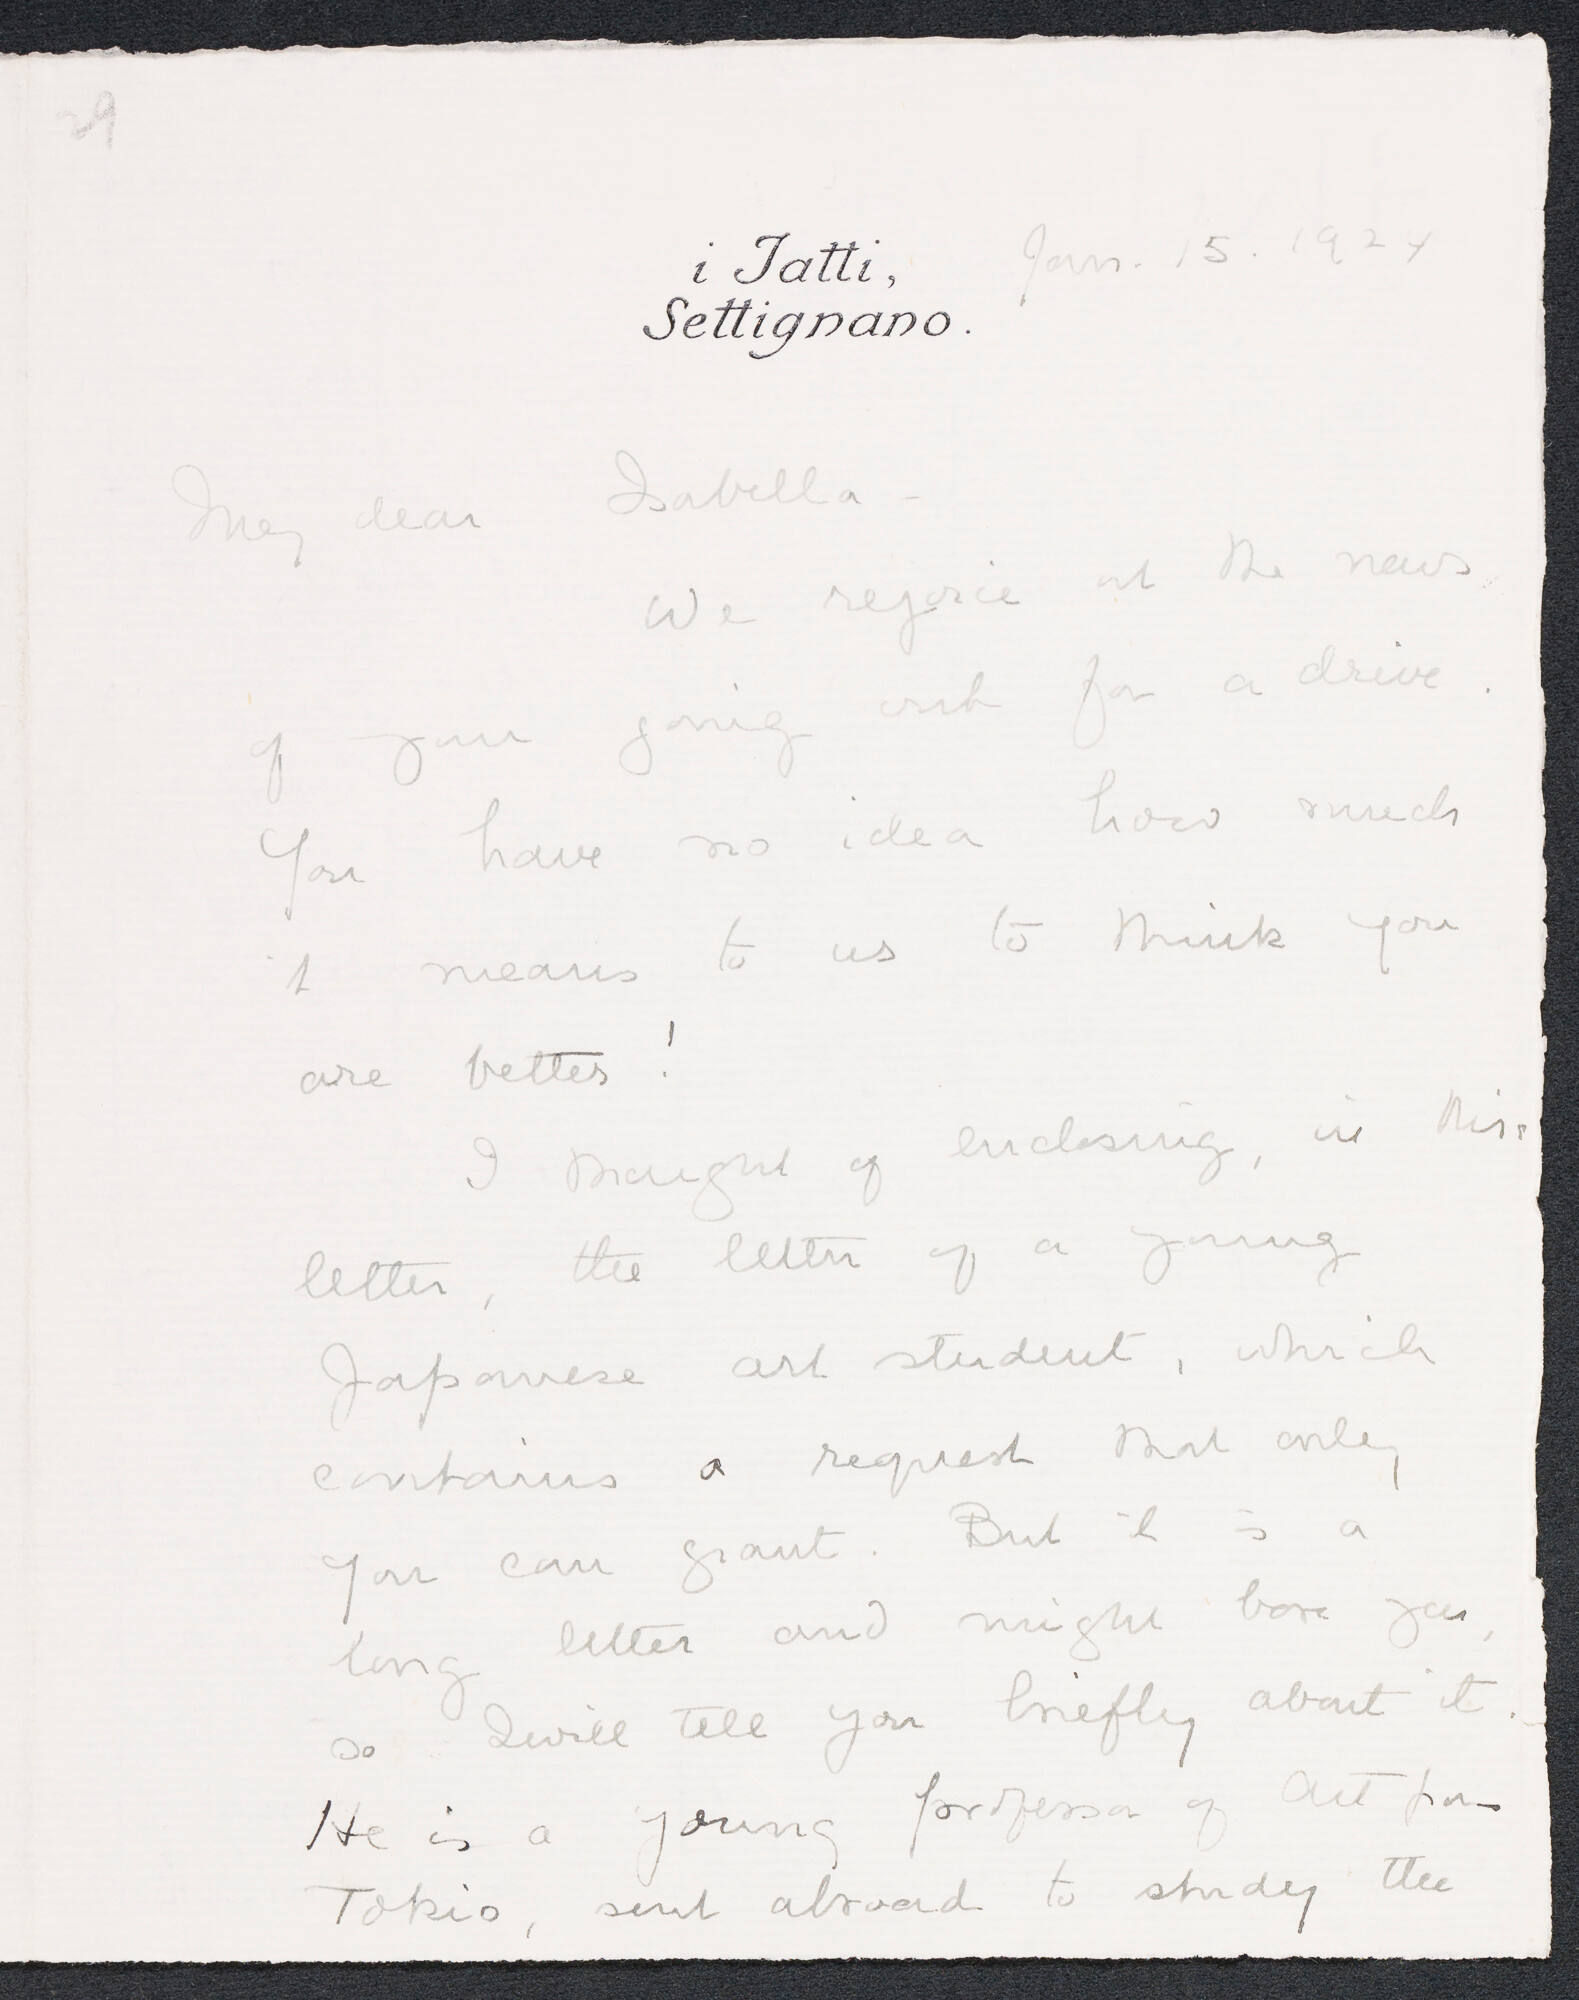 29
i Tatti,
Settignano.
Jan. 15. 1924
My dear Isabella -
We rejoice at the news
of your going out for a drive.
You have no idea how much
it means to us to think you
are better!
I thought of enclosing, in this
letter, the letter of a young
Japanese art student, which
contains a request that only
you can grant. But it is a
long letter and might bore you,
so I will tell you briefly about it.
He is a young professor of Art from
Tokio, sent abroad to study the